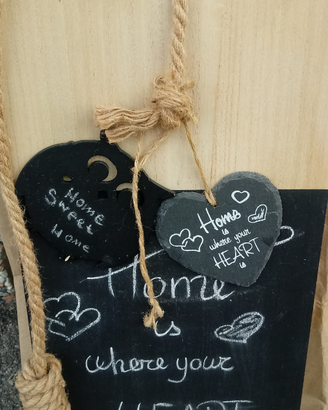 Home
Sweet
Home
Home
is
where your
HEART
is
Home
is
where your
HEART